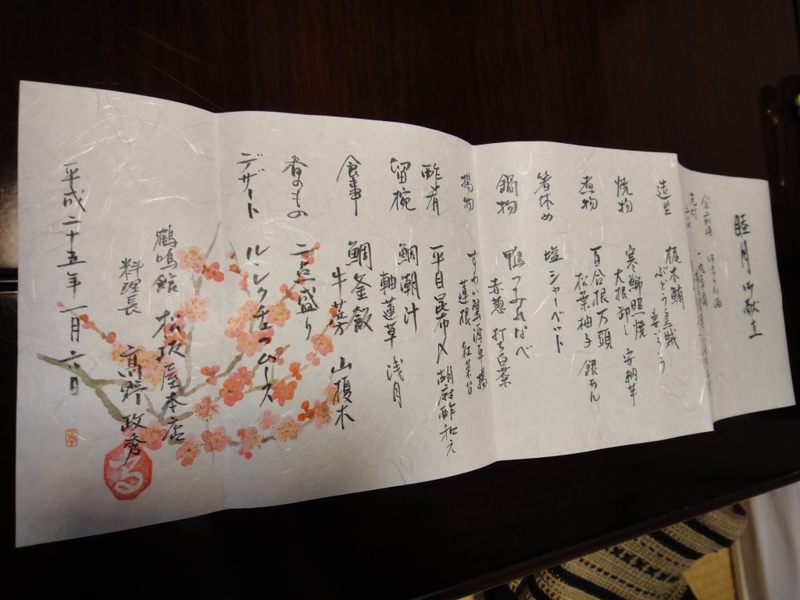 睦月御献立
食前酒
造里
植木鮪
ぶどう烏賊
焼物
寒鰤照焼
大根卸し 安納芋
煮物
百合根万頭
松葉柚子 銀あん
箸休め
塩シャーベット
鍋物
鴨つみれなべ
赤葱 打ち白菜
揚物
ずわい蟹源平揚
蓮根 紅菜台
酢肴
平目昆布〆 胡麻酢和え
留椀
鯛潮汁
軸蓮草 浅月
食事
鯛釜飯
牛蒡 山榎木
香のもの
二点盛り
デザート
ル・レクチェムース
鶴鳴館 松坂屋本店
料理長 高野政秀
平成二十五年一月六日